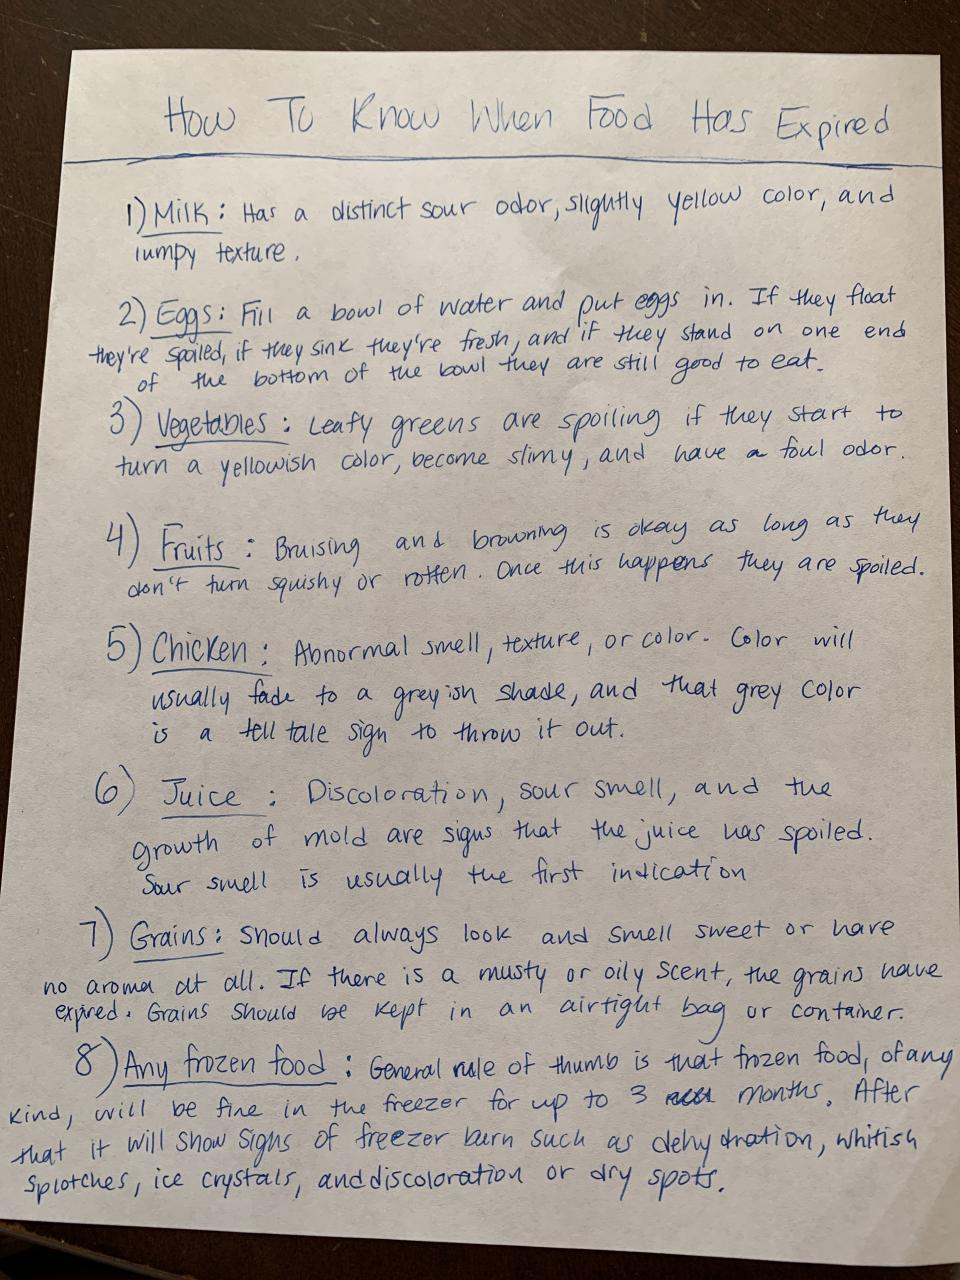 How To Know When Food Has Expired
1) Milk: Has a distinct sour odor, slightly yellow color, and
lumpy texture.
2) Eggs: Fill a bowl of water and put eggs in. If they float
they're spoiled, if they sink they're fresh, and if they stand on one end
of the bottom of the bowl they are still good to eat.
3) Vegetables: Leafy greens are spoiling if they start to
turn a yellowish color, become slimy, and have a foul odor.
4) Fruits: Bruising and browning is okay as long as they
don't turn squishy or rotten. Once this happens they are spoiled.
5) Chicken: Abnormal smell, texture, or color. Color will
usually fade to a greyish shade, and that grey color
is a tell tale sign to throw it out.
6) Juice: Discoloration, sour smell, and the
growth of mold are signs that the juice has spoiled.
Sour smell is usually the first indication
7) Grains: Should always look and smell sweet or have
no aroma at all. If there is a musty or oily scent, the grains have
expired. Grains should be kept in an airtight bag or container.
8) Any frozen food: General rule of thumb is that frozen food, of any
kind, will be fine in the freezer for up to 3 months. After
that it will show signs of freezer burn such as dehydration, whitish
splotches, ice crystals, and discoloration or dry spots.